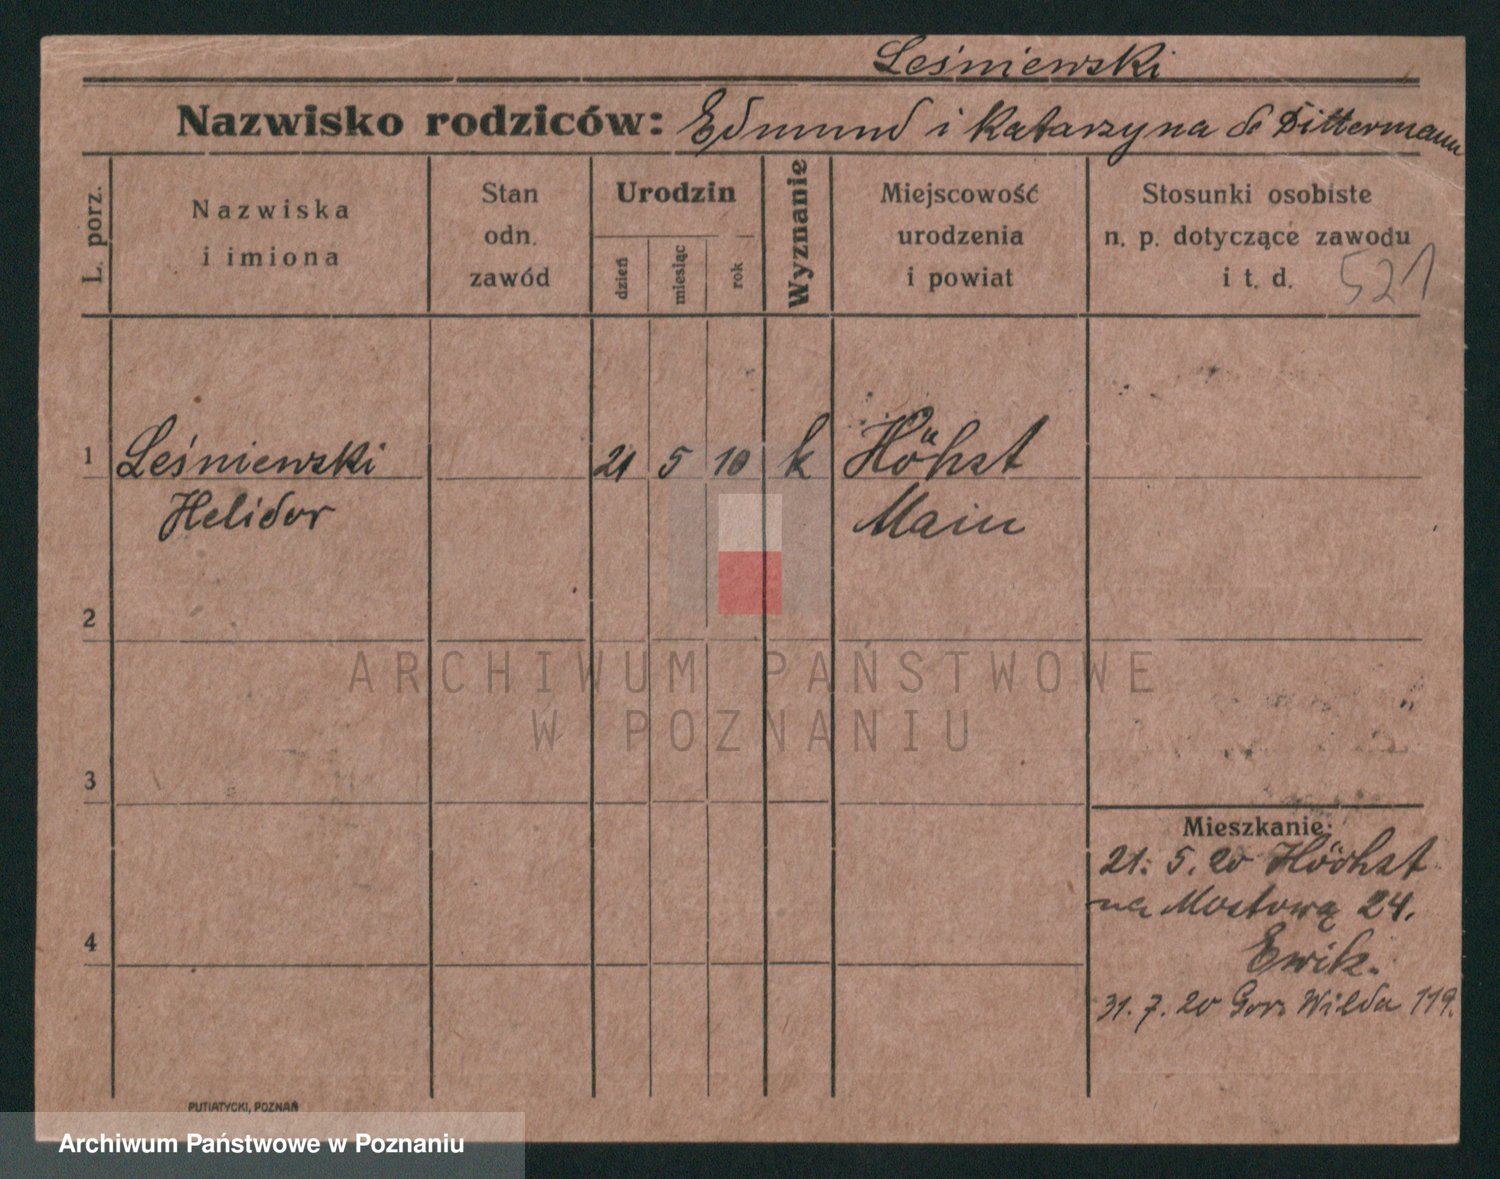 Leśniewski
Nazwisko rodziców: Edmund i Katarzyna de Dittermann
L. porz.
Nazwiska
i imiona
Stan
odn.
zawód
Urodzin
dzień
miesiąc
rok
Wyznanie
Miejscowość
urodzenia
i powiat
Stosunki osobiste
n. p. dotyczące zawodu
i t. d.
521
1 Leśniewski 21 5 10 k Höhst
Helidor Main
2
ARCHIWUM PAŃSTWOWE
W POZNANIU
3
Mieszkanie:
21. 5. 20 Höchst
na Mostową 24.
4
Ewik.
31. 7. 20 Gor. Wilda 119.
PUTIATYCKI, POZNAŃ
Archiwum Państwowe w Poznaniu